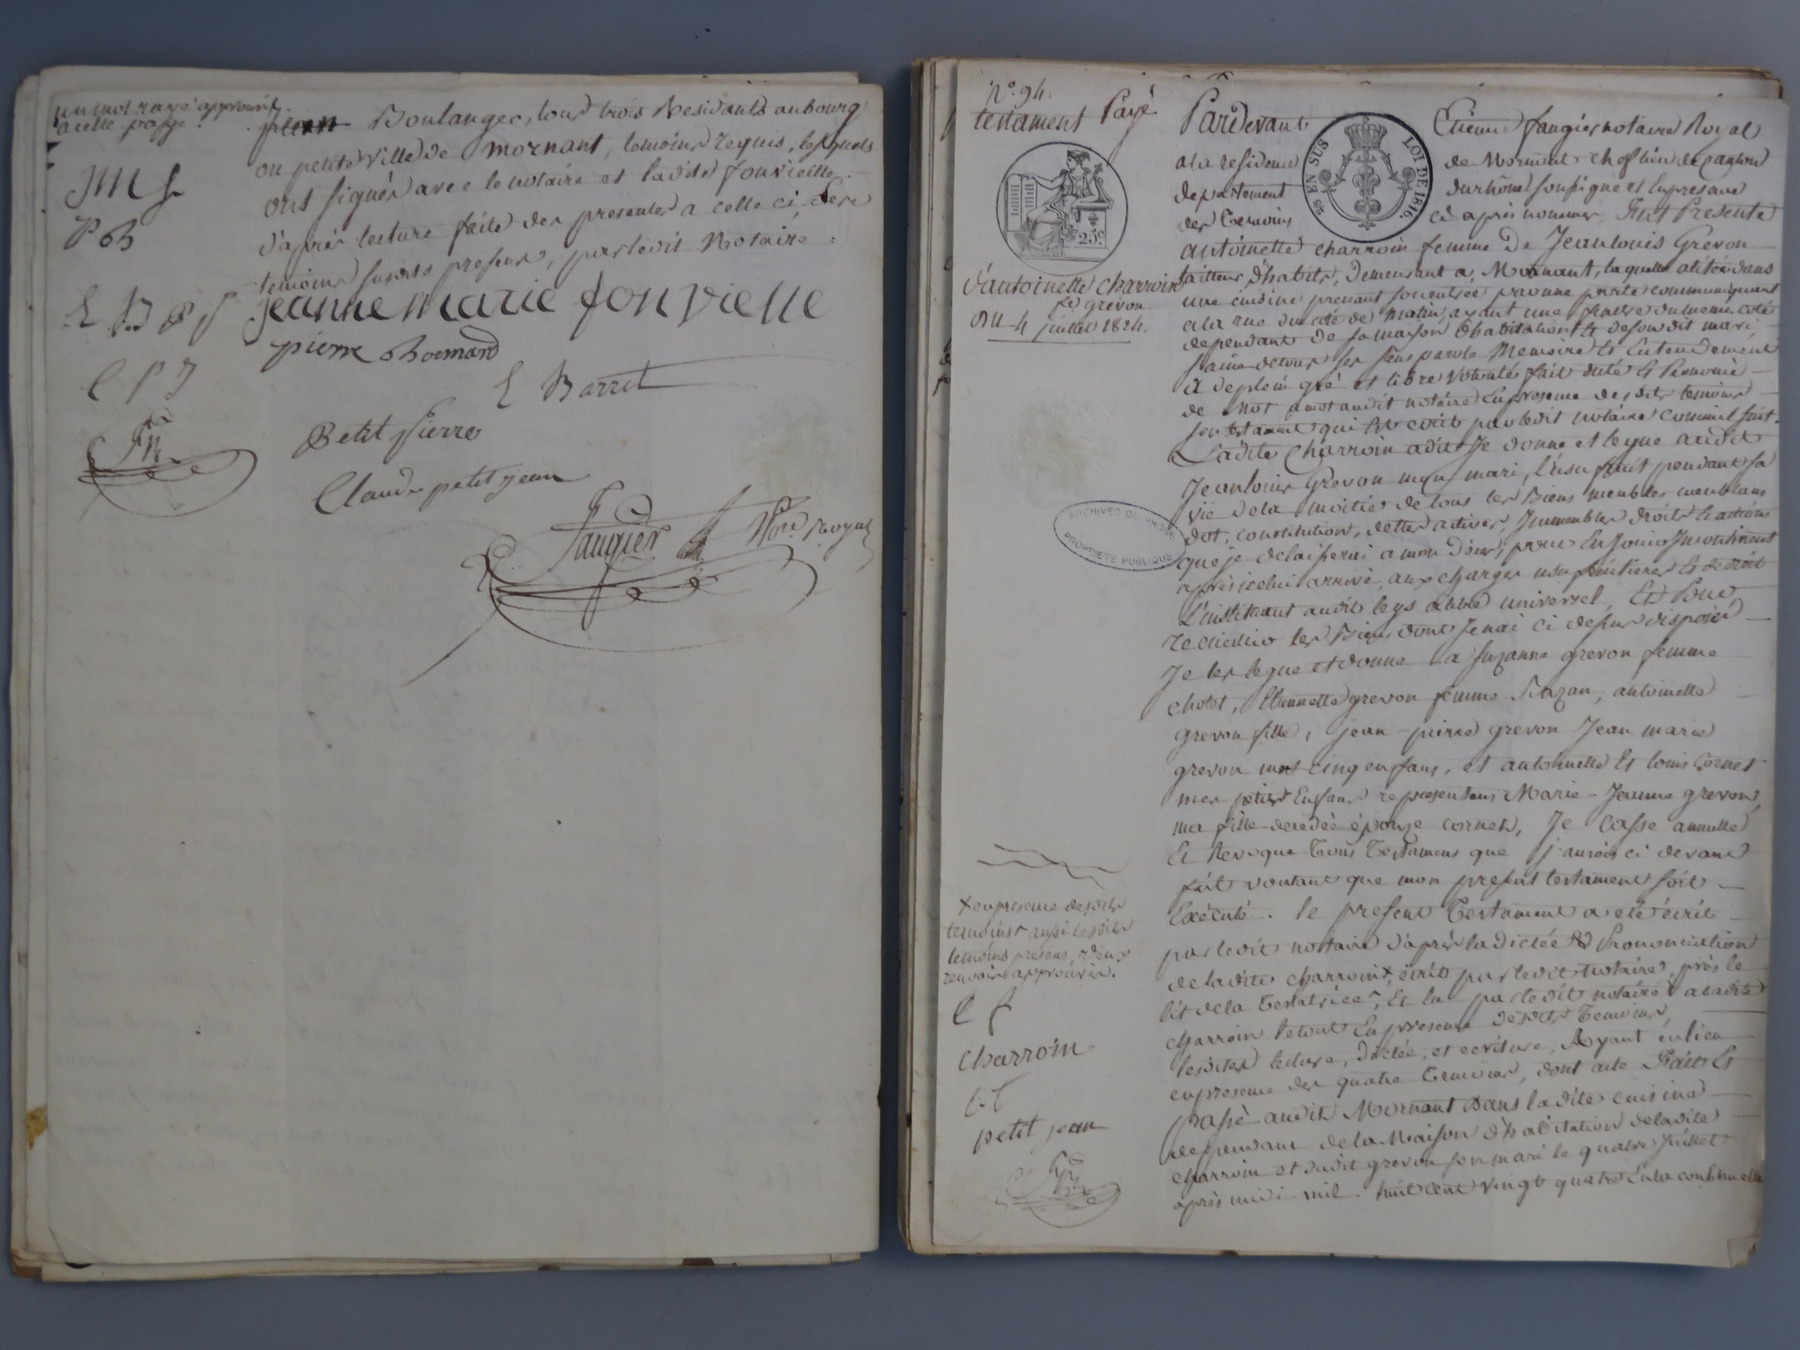 un mot rayé approuvé
a cette page.
Boulanger, tous trois Residants au bourg
ou petite ville de mornant, temoins requis, lesquels
ont signés avec le notaire et ladite fonvieille
d'après lecture faite des presentes a celle ci, les
temoins susdits presens, par ledit Notaire.
JM f
P Ch
E B P J
C P J
jeanne marie fonvielle
pierre
E Barret
Petit Pierre
Claude petit jean
faugier Nore Royal
N° 94.
testament Payé
25c
d'antoinette charroin
fe grevon
Du 4 juillet 1824.
EN SUS LOI DE 1816.
Pardevant Etienne faugier notaire Royal
a la residence de Mornant chef lieu de canton
departement du rhône soussigné et en presence
des temoins ci après nommés, fut Presente
antoinette charroin femme de Jean louis Grevon
tailleur d'habits, demeurant a Mornant, laquelle alitée dans
une cuisine prenant son entrée par une porte communiquant
a la rue du coté de matin, ayant une fenetre du meme coté
dependant de sa maison d'habitation et de son dit mari
saine de tous ses sens parole Memoire et Entendement
a de plein gré et libre volonté fait dicté et prononcé
de mot a mot audit notaire en presence des dits temoins
son testament qui est ecrit par ledit notaire comme suit.
Ladite Charroin a dit Je donne et legue audit
Jean louis Grevon mon mari, l'usufruit pendant sa
vie de la moitié de tous les biens meubles meublans
dot, constitution, dettes actives, Immeubles droits et actions
que je delaisserai a mon deces, pour en Jouir Incontinent
après icelui arrivé, aux charges usufruitieres et de droit
L'instituant audit legs a titre universel, Et Pour
le residu les biens dont je n'ai ci dessus disposés
Je les legue et donne a suzanne grevon femme
chotet, Etiennette grevon femme Razan, antoinette
grevon fille, jean pierre grevon Jean marie
grevon mes cinq enfans, et antoinette Et louis Cornet
mes petits Enfans representans Marie-Jeanne grevon,
ma fille decedée épouse cornet, Je casse annulle
Et Revoque tous testamens que j'aurois ci devant
fait voulant que mon present testament soit
Exécuté. le present testament a été écrit
par ledit notaire d'après la dictée et Prononciation
de ladite charroin, × écrit par ledit notaire, près le
lit de la testatrice, et lu par ledit notaire a ladite
charroin le tout En presence desdits temoins,
lesdites lecture, dictée, et ecriture, Ayant eu lieu
en presence des quatre temoins, dont acte Fait Et
passé audit Mornant Dans ladite cuisine
dependant de la Maison d'habitation de ladite
charroin et dudit grevon son mari le quatre juillet
après midi mil huit cent vingt quatre
× en presence desdits
temoins aussi lesdits
temoins presens, 
renvois approuvés.
C f
charroin
petit jean
ARCHIVES DU RHÔNE
PROPRIÉTÉ PUBLIQUE